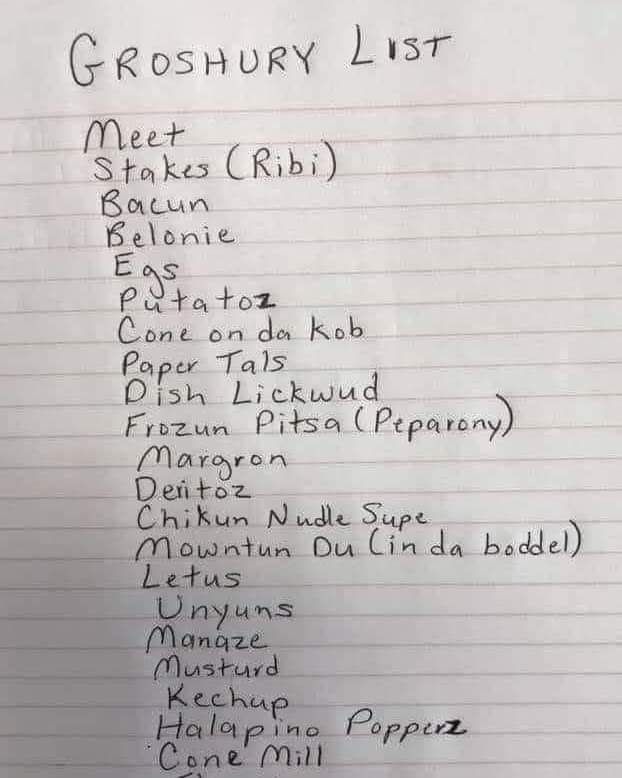 GROSHURY LIST
Meet
Stakes (Ribi)
Bacun
Belonie
Egs
Putatoz
Cone on da kob
Paper Tals
Dish Lickwud
Frozun Pitsa (Peparony)
Margron
Deritoz
Chikun Nudle Supe
Mowntun Du (in da boddel)
Letus
Unyuns
Manaze
Musturd
Kechup
Halapino Popperz
Cone Mill